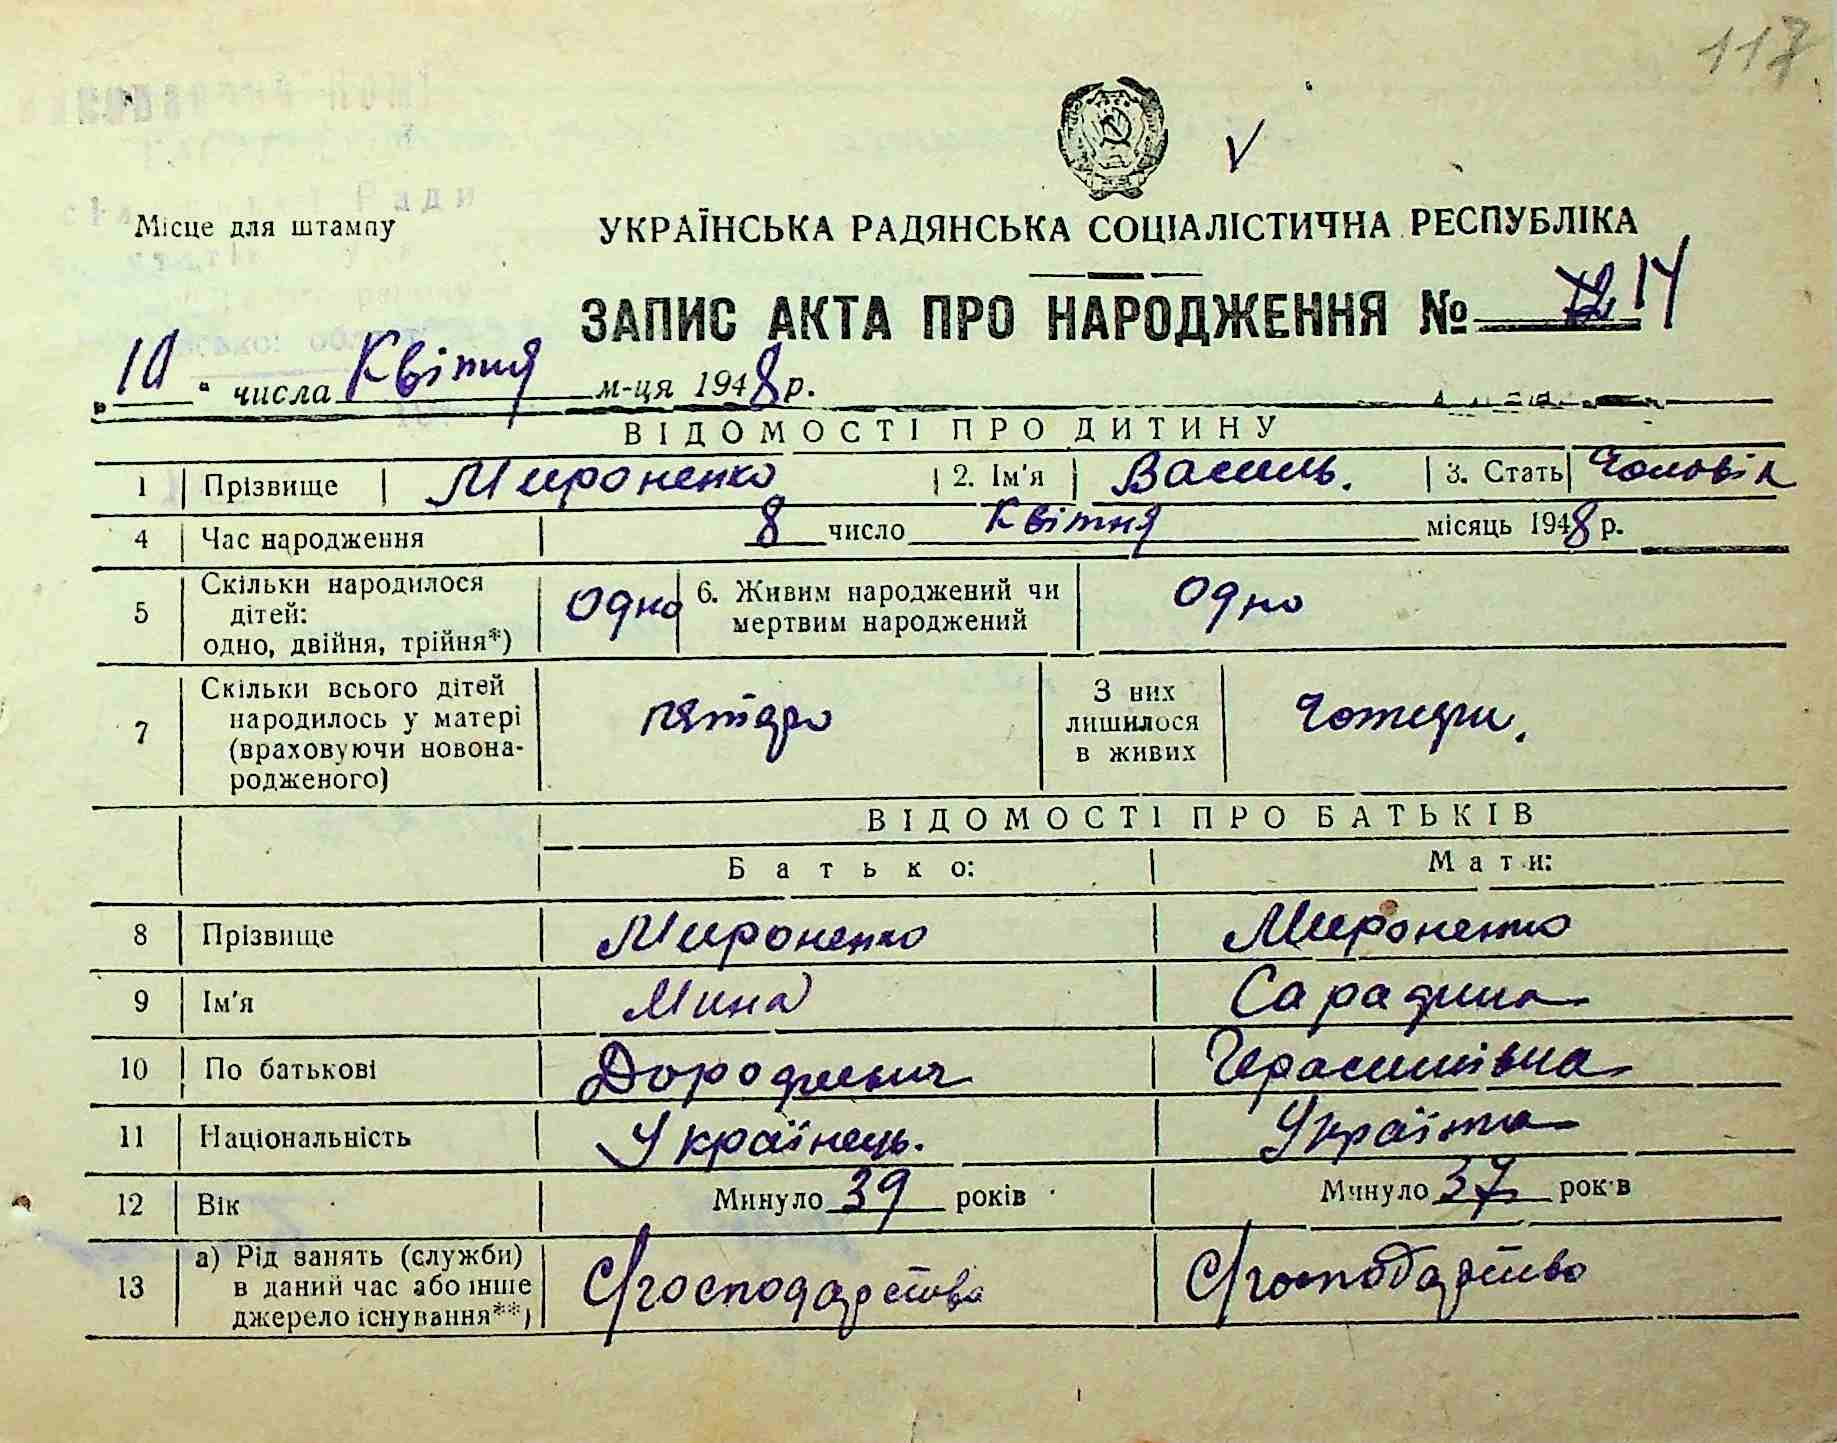 117
Місце для штампу
УКРАЇНСЬКА РАДЯНСЬКА СОЦІАЛІСТИЧНА РЕСПУБЛІКА
ЗАПИС АКТА ПРО НАРОДЖЕННЯ № 14
„10“ числа Квітня м-ця 1948 р.
ВІДОМОСТІ ПРО ДИТИНУ
1 Прізвище Мироненко 2. Ім'я Василь. 3. Стать Чоловік
4 Час народження 8 число Квітня місяць 1948 р.
5 Скільки народилося дітей: одно, двійня, трійня*) Одно 6. Живим народжений чи мертвим народжений Одно
7 Скільки всього дітей народилось у матері (враховуючи новонародженого) пятеро З них лишилося в живих Чотери.
ВІДОМОСТІ ПРО БАТЬКІВ
Батько: Мати:
8 Прізвище Мироненко Мироненко
9 Ім'я Мина Сарадина
10 По батькові Дородиевич Герасимівна
11 Національність Українець. Українка
12 Вік Минуло 39 років Минуло 37 років
13 а) Рід занять (служби) в даний час або інше джерело існування**) С/господарство С/господарство